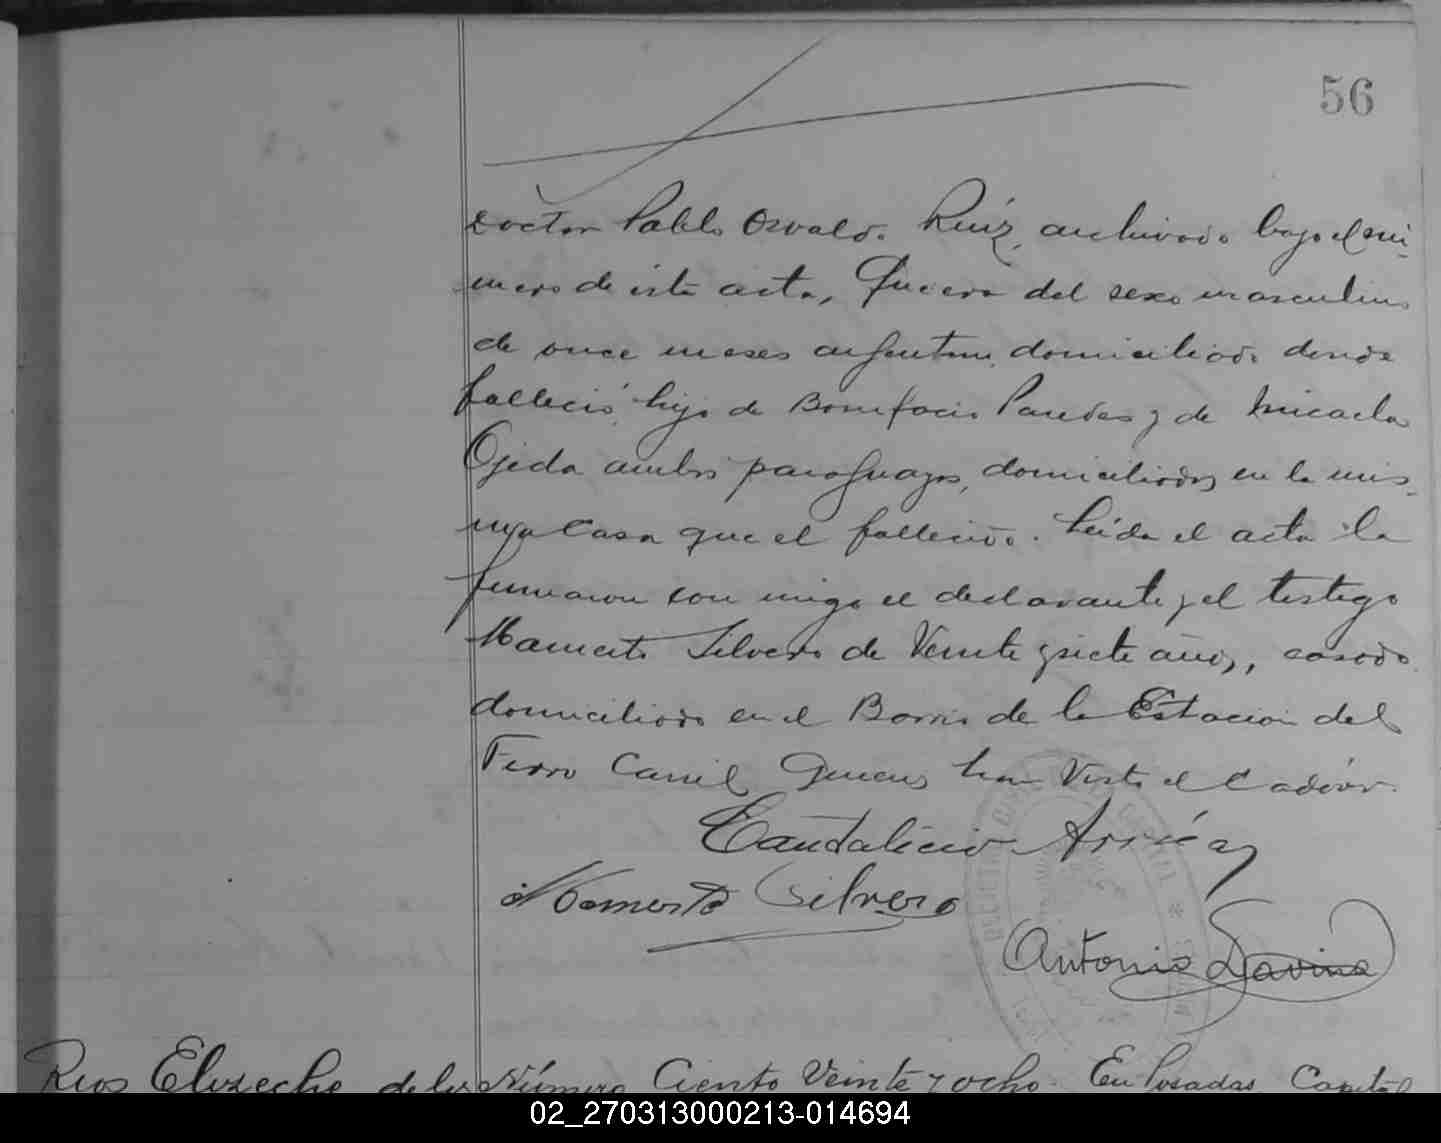 56
Doctor Pablo Osvaldo Ruíz, archivado bajo el nú-
mero de este acta, Que era del sexo masculino
de once meses argentino, domiciliado donde
falleció, hijo de Bonifacio Paredes y de Micaela
Ojeda ambos paraguayos, domiciliados en la mis-
ma Casa que el fallecido. Leída el acta la
firmaron con migo el declarante y el testigo
Mamerto Silvero de Veinte y siete años, casado
domiciliado en el Barrio de la Estación del
Ferro Carril Quienes han Visto el Cadáver.
Candalicio
Mamerto Silvero
Antonio
Rios Número Ciento Veinte y ocho. En Posadas Capital
02_270313000213-014694